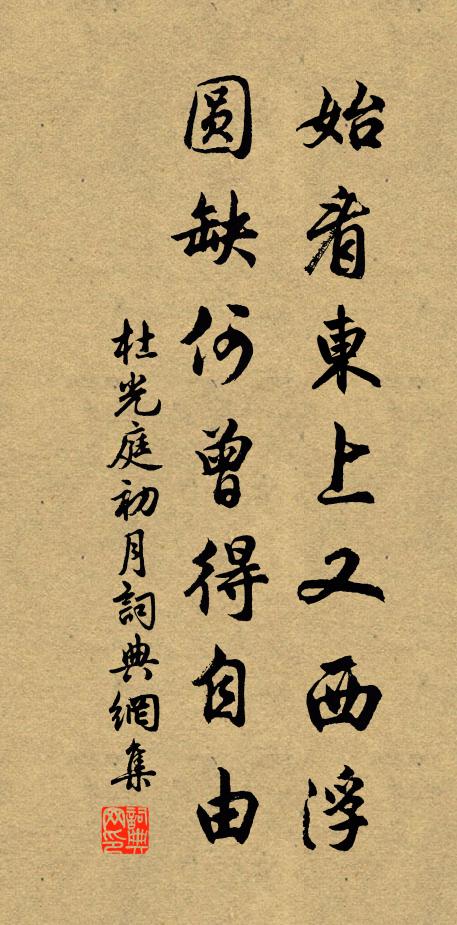 始看東上又西浮
圓缺何曾得自由
杜光庭初月詞典網集
詞典網印